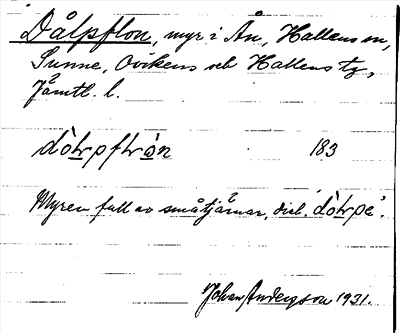 Dålpflon, myr i Ån, Hallens sn,
Sunne, Ovikens och Hallens tg,
Jämtl. l.
dòtrpftròn 183
Myren full av småtjärnar, dial. dòtrpa.
Johan Andersson 1931.